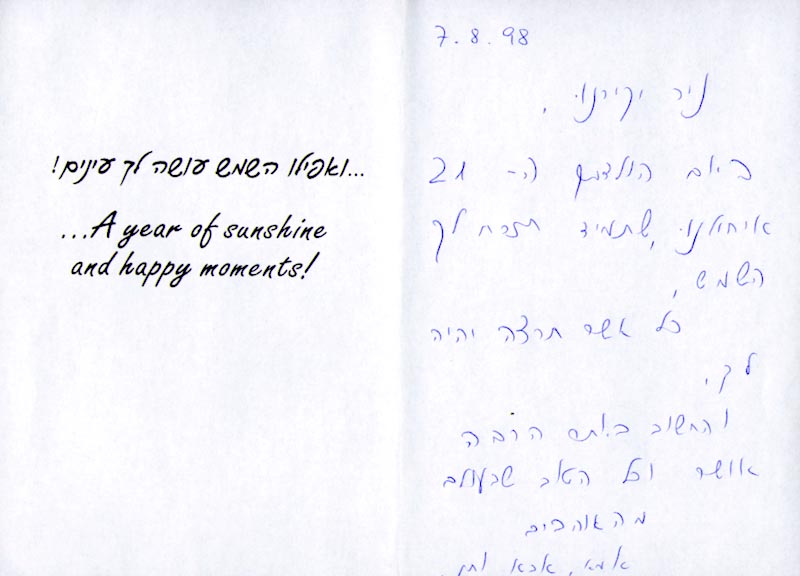 ...ואפילו השמש עושה לך עינים!
...A year of sunshine
and happy moments!
7.8.98
ניר יקירנו,
ביום הולדתך ה- 21
איחולנו, שתמיד תזרח לך
השמש,
כל אשר תרצה יהיה
לך,
והחשוב ביותר הרבה
אושר וכל הטוב שבעולם
מהאוהבים
אמא, אבא